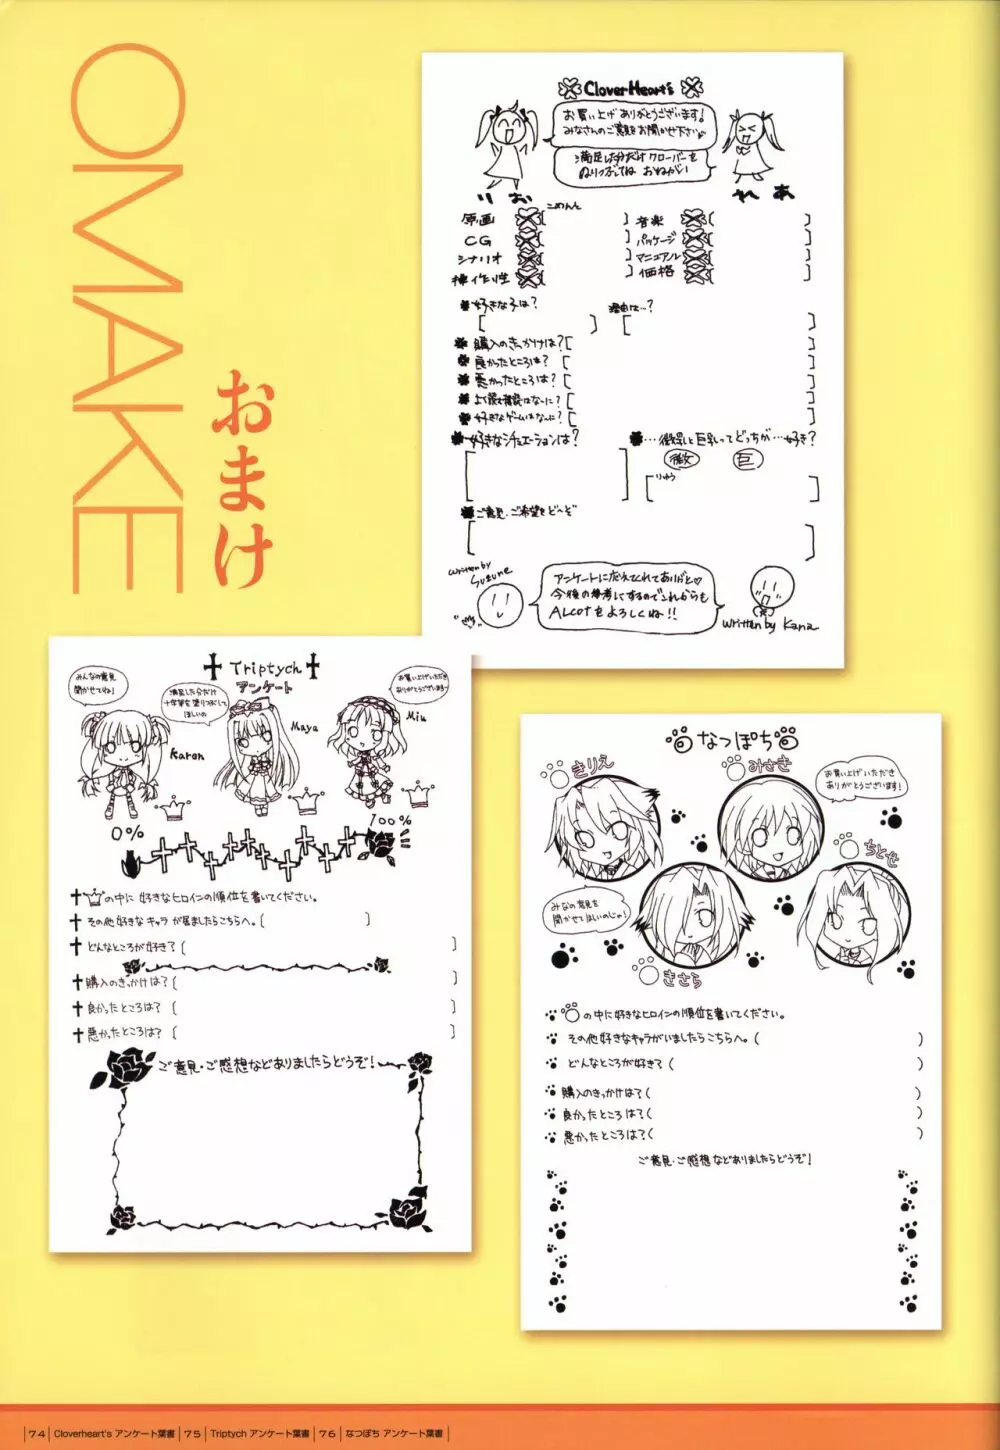 OMAKE
おまけ
CloverHeart's
お買い上げありがとうございます!
みなさんのご意見をお聞かせ下さい
満足した分だけクローバーを
ぬりつぶしてね おねがい
りお
れあ
こめんと
原画
CG
シナリオ
操作性
音楽
パッケージ
マニュアル
価格
好きな子は?
理由は…?
購入のきっかけは?
良かったところは?
悪かったところは?
よく読む雑誌はなーに?
好きなゲームはなーに?
好きなシチュエーションは?
…微乳と巨乳ってどっちが…好き?
微
巨
りゆう
ご意見・ご希望をど〜ぞ
written by
Suzune
アンケートに応えてくれてありがと♡
今後の参考にするのでこれからも
ALcotをよろしくね!!
written by Kana
Triptych
アンケート
みんなの意見
聞かせてね!
満足した分だけ
十字架を塗りつぶして
ほしいの
お買い上げいただき
ありがとうございまーす
Karen
Maya
Miu
0%
100%
の中に 好きなヒロインの順位を書いてください。
その他好きなキャラが居ましたらこちらへ。
どんなところが好き?
購入のきっかけは?
良かったところは?
悪かったところは?
ご意見・ご感想などありましたらどうぞ!
なつぽち
きりえ
みさき
お買い上げいただき
ありがとうございます!
ちとせ
みなの意見を
聞かせてほしいのじゃ!
きさら
の中に好きなヒロインの順位を書いてください。
その他好きなキャラがいましたらこちらへ。
どんなところが好き?
購入のきっかけは?
良かったところは?
悪かったところは?
ご意見・ご感想などありましたらどうぞ!
|74|Cloverheart's アンケート葉書|75|Triptych アンケート葉書|76|なつぽち アンケート葉書|